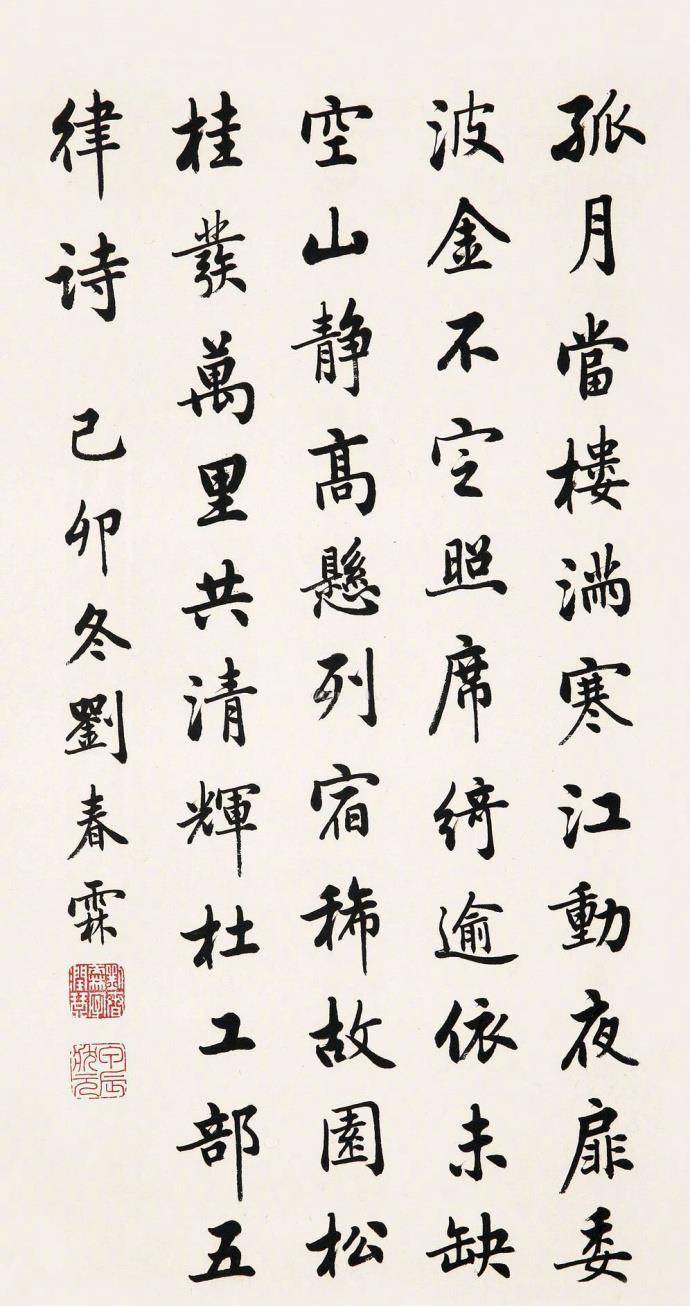 孤月當樓滿寒江動夜扉委
波金不定照席綺逾依未缺
空山静髙懸列宿稀故園松
桂發萬里共清輝杜工部五
律詩 己卯冬劉春霖